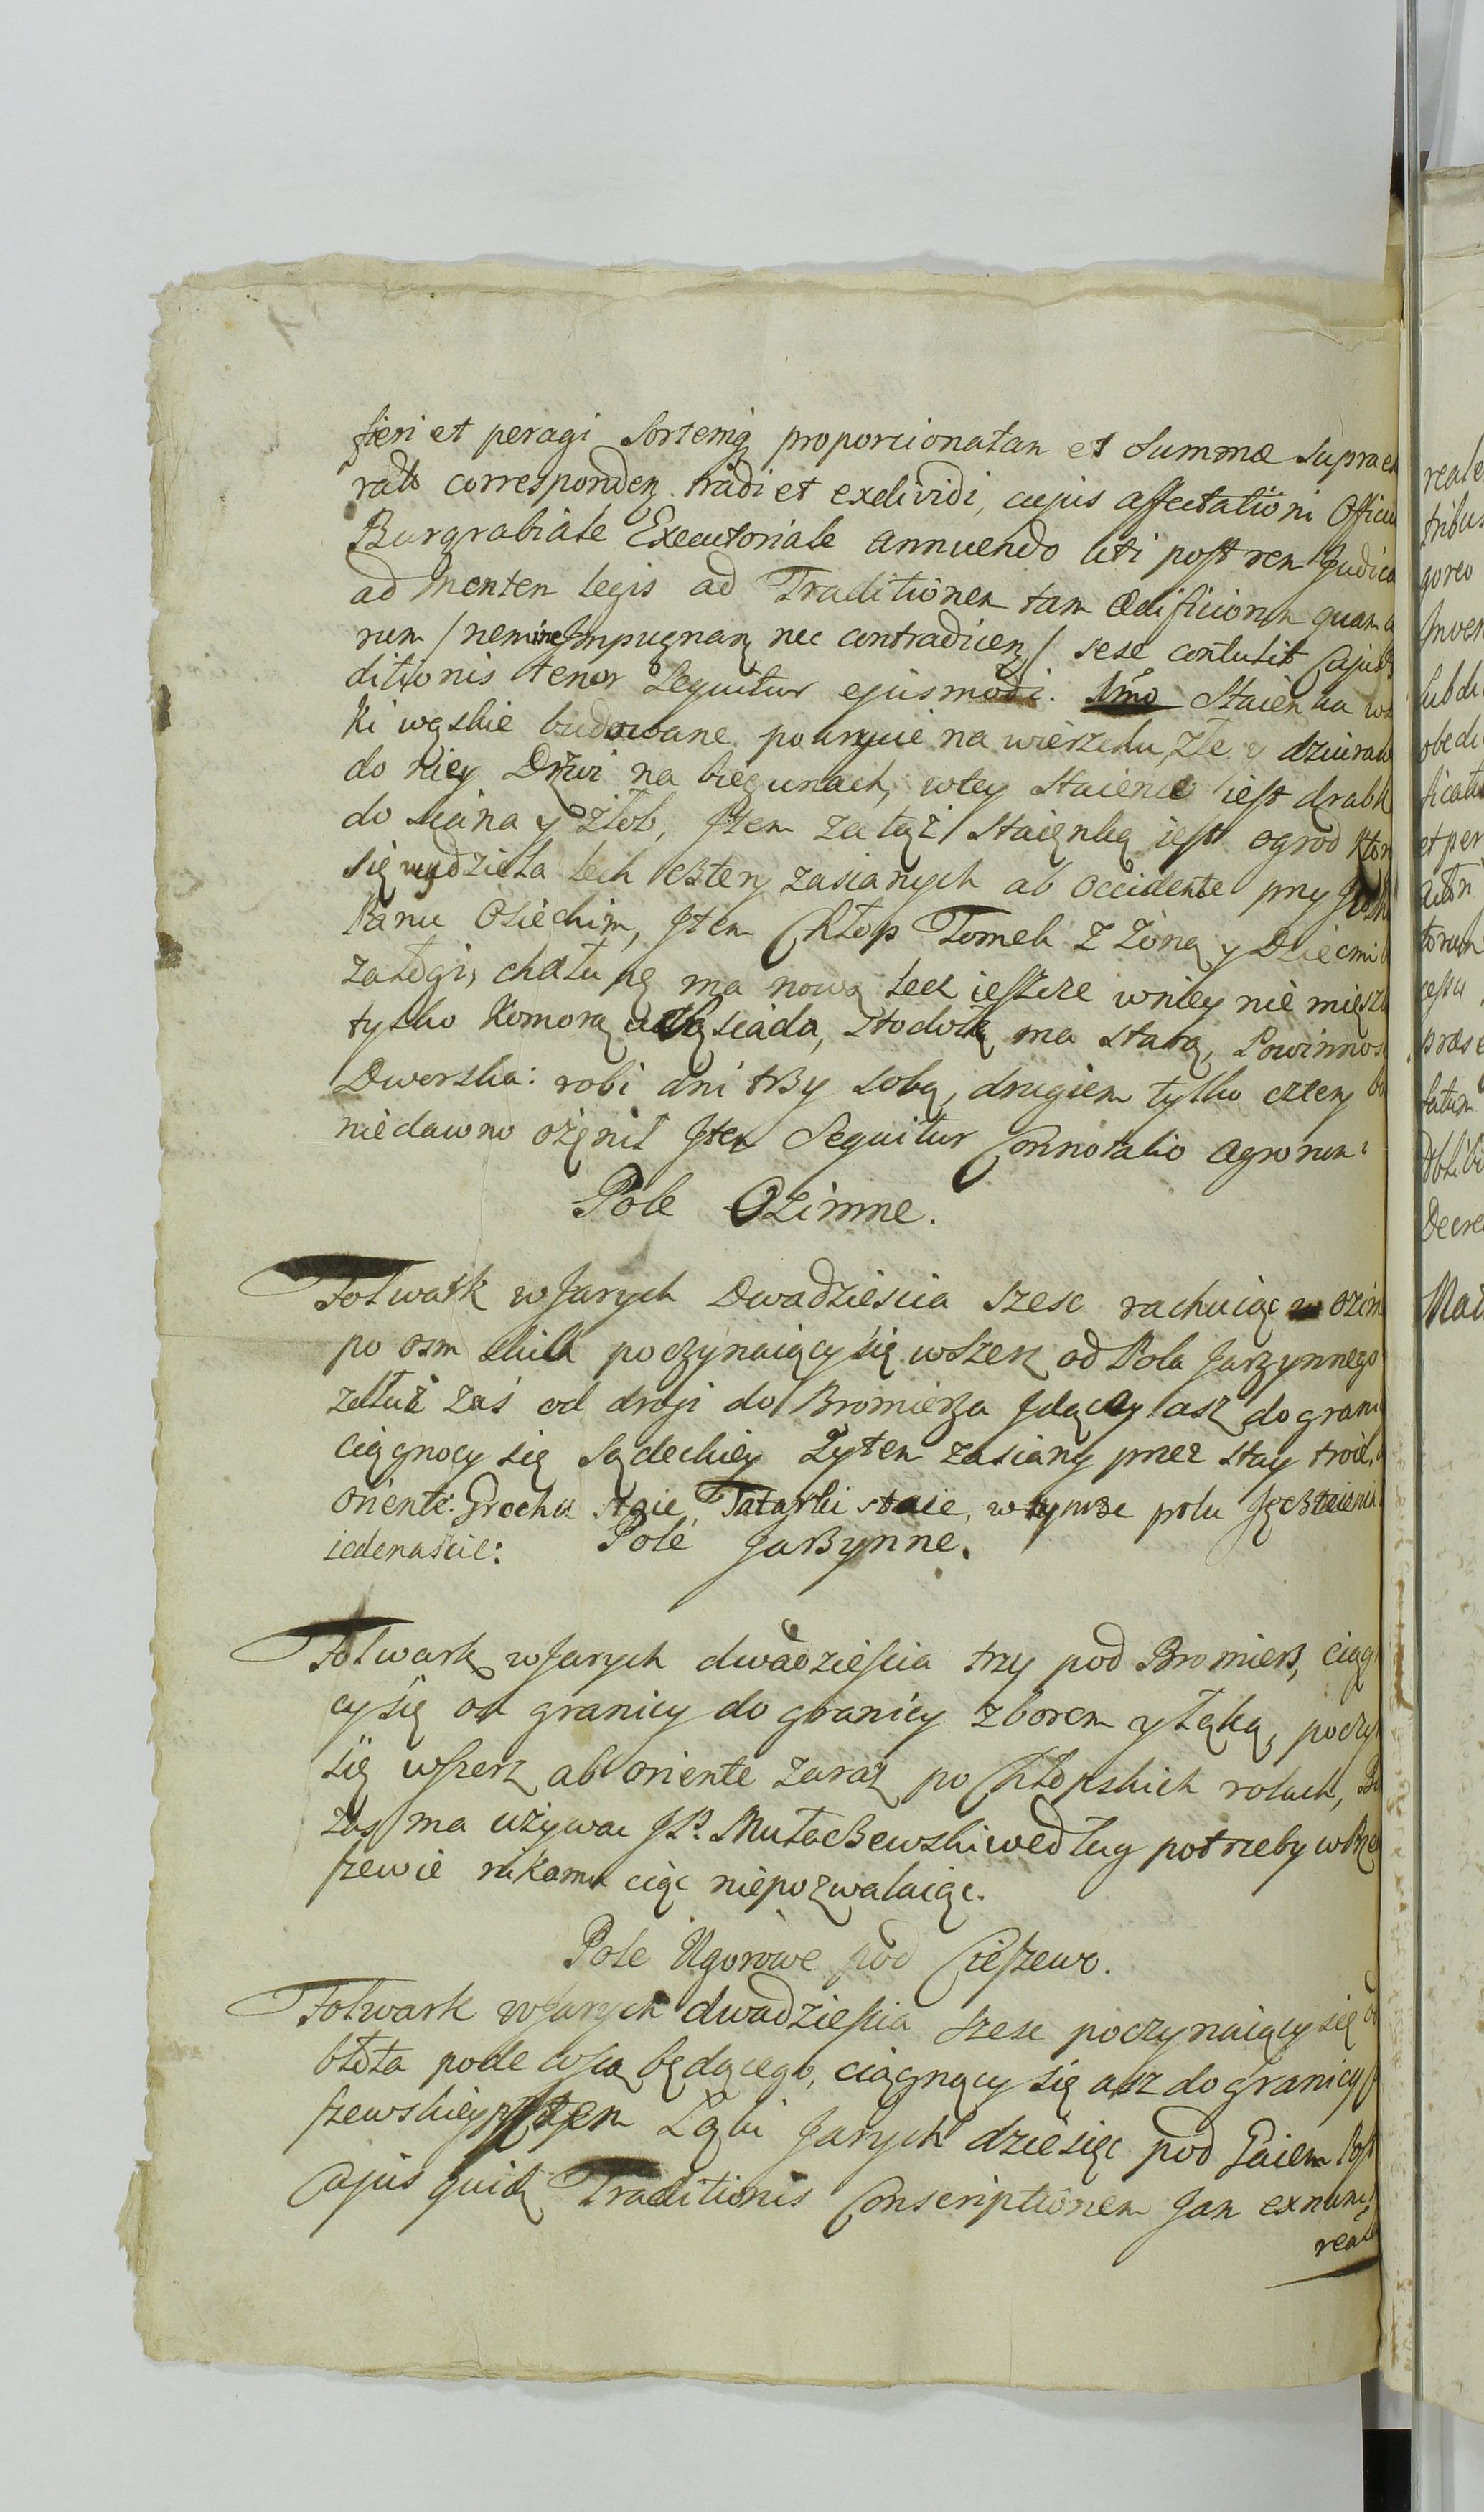 fieri et peragi Sortemq proporcionatam et Summæ supraex
rato correspondeng tradi et exdividi, cujus affectationi Officiu
Burgrabiale Executoriale annuendo uti post rem Judica
ad mentem legis ad Traditionem tam ædificiorum quam a
rum / nemine Impugnang nec contradiceng / sese contulit Cujus
ditionis tenor Sequitur ejusmodi. 1mo Staienka w
ki węskie budowane pokrycie na wierzchu, złe y dziuraw
do niey Drzwi na biegunach, wtey Staience iest drabk
do siana y żłob, Jtem za tąż Staięnką iest ogrod ktor
się wydziela lech cztery zasianych ab occidente przy
Panu Osiechim, Jtem Chłop Tomek z Żoną y Dziećmi
załogi, chałupę ma nową lecz ieszcze wniey nie mięszk
tylko Komorą u Sąsiada, Stodołę ma starą, Powinnos
Dworska: robi dni trzy sobą, drugiem tylko cztery bo
niedawno ożęnił Jtem Sequitur Connotatio agrorum:
Pole Oźimne.
Folwark wJarych Dwadzieścia szesc rachuiąc w oźim
po osm skib poczynaiący się wszerz od Pola Jarzynnego
zdłuż zaś od drogi do Bromierza Jdący asz do grani
ciągnocy się Sądeckiey Żytem zasiany przez stay troie,
oriente. Grochu staie, Tatarki staie, w tymże polu Jęczmieniu
iedenaście:
Pole Jarzynne.
Folwark wJarych dwadzieścia trzy pod Bromierz, ciąg
cy się od granicy do granicy zborem y Łąką, poczy
się wszerz ab oriente zaraz po Chłopskich rolach, Bo
zas ma używac JP. Mułaczewski według potrzeby w
szewie nikomu ciąc niepozwalaiąc.
Pole Ugorowe pod Cieszewo.
Folwark wJarych dwadzieścia szesc poczynaiący się od
błota pode wsią będącego, ciągnący się asz do granicy
szewskiey, Jtem Łąki Jarych dziesięc pod Gaiem
Cujus quidę Traditionis Conscriptionem Jam exnunc
reale

reale
tribus
goreo
Inven
Subdi
obedi
ficatu
et per
actor
torum
cessu
præse
latum
obliti
Decre
Mat